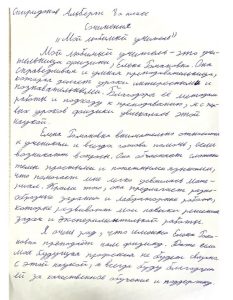 Спиридонов Альберт 8а класс
Сочинение
"Мой любимый учитель"
Мой любимый учитель - это учи-
тельница физики, Елена Ивановна. Она
справедливая и умная преподавательница,
которая делает уроки интересными и
познавательными. Благодаря её методам
работы и подходу к преподаванию, я с пер-
вых уроков физики увлёкся этой
наукой.
Елена Ивановна внимательно относится
к ученикам и всегда готова помочь, если
возникают вопросы. Она объясняет сложные
темы простыми и понятными словами,
что помогает мне легче усваивать мате-
риал. Кроме того, она предлагает разно-
образные задания и лабораторные работы,
которые развивают мои навыки решения
задач и экспериментальной работы.
Я очень рад, что именно Елена Ива-
новна преподаёт нам физику. Даже если
моя будущая профессия не будет связана
с этой наукой, я всегда буду благодарен
ей за качественное обучение и поддержку.